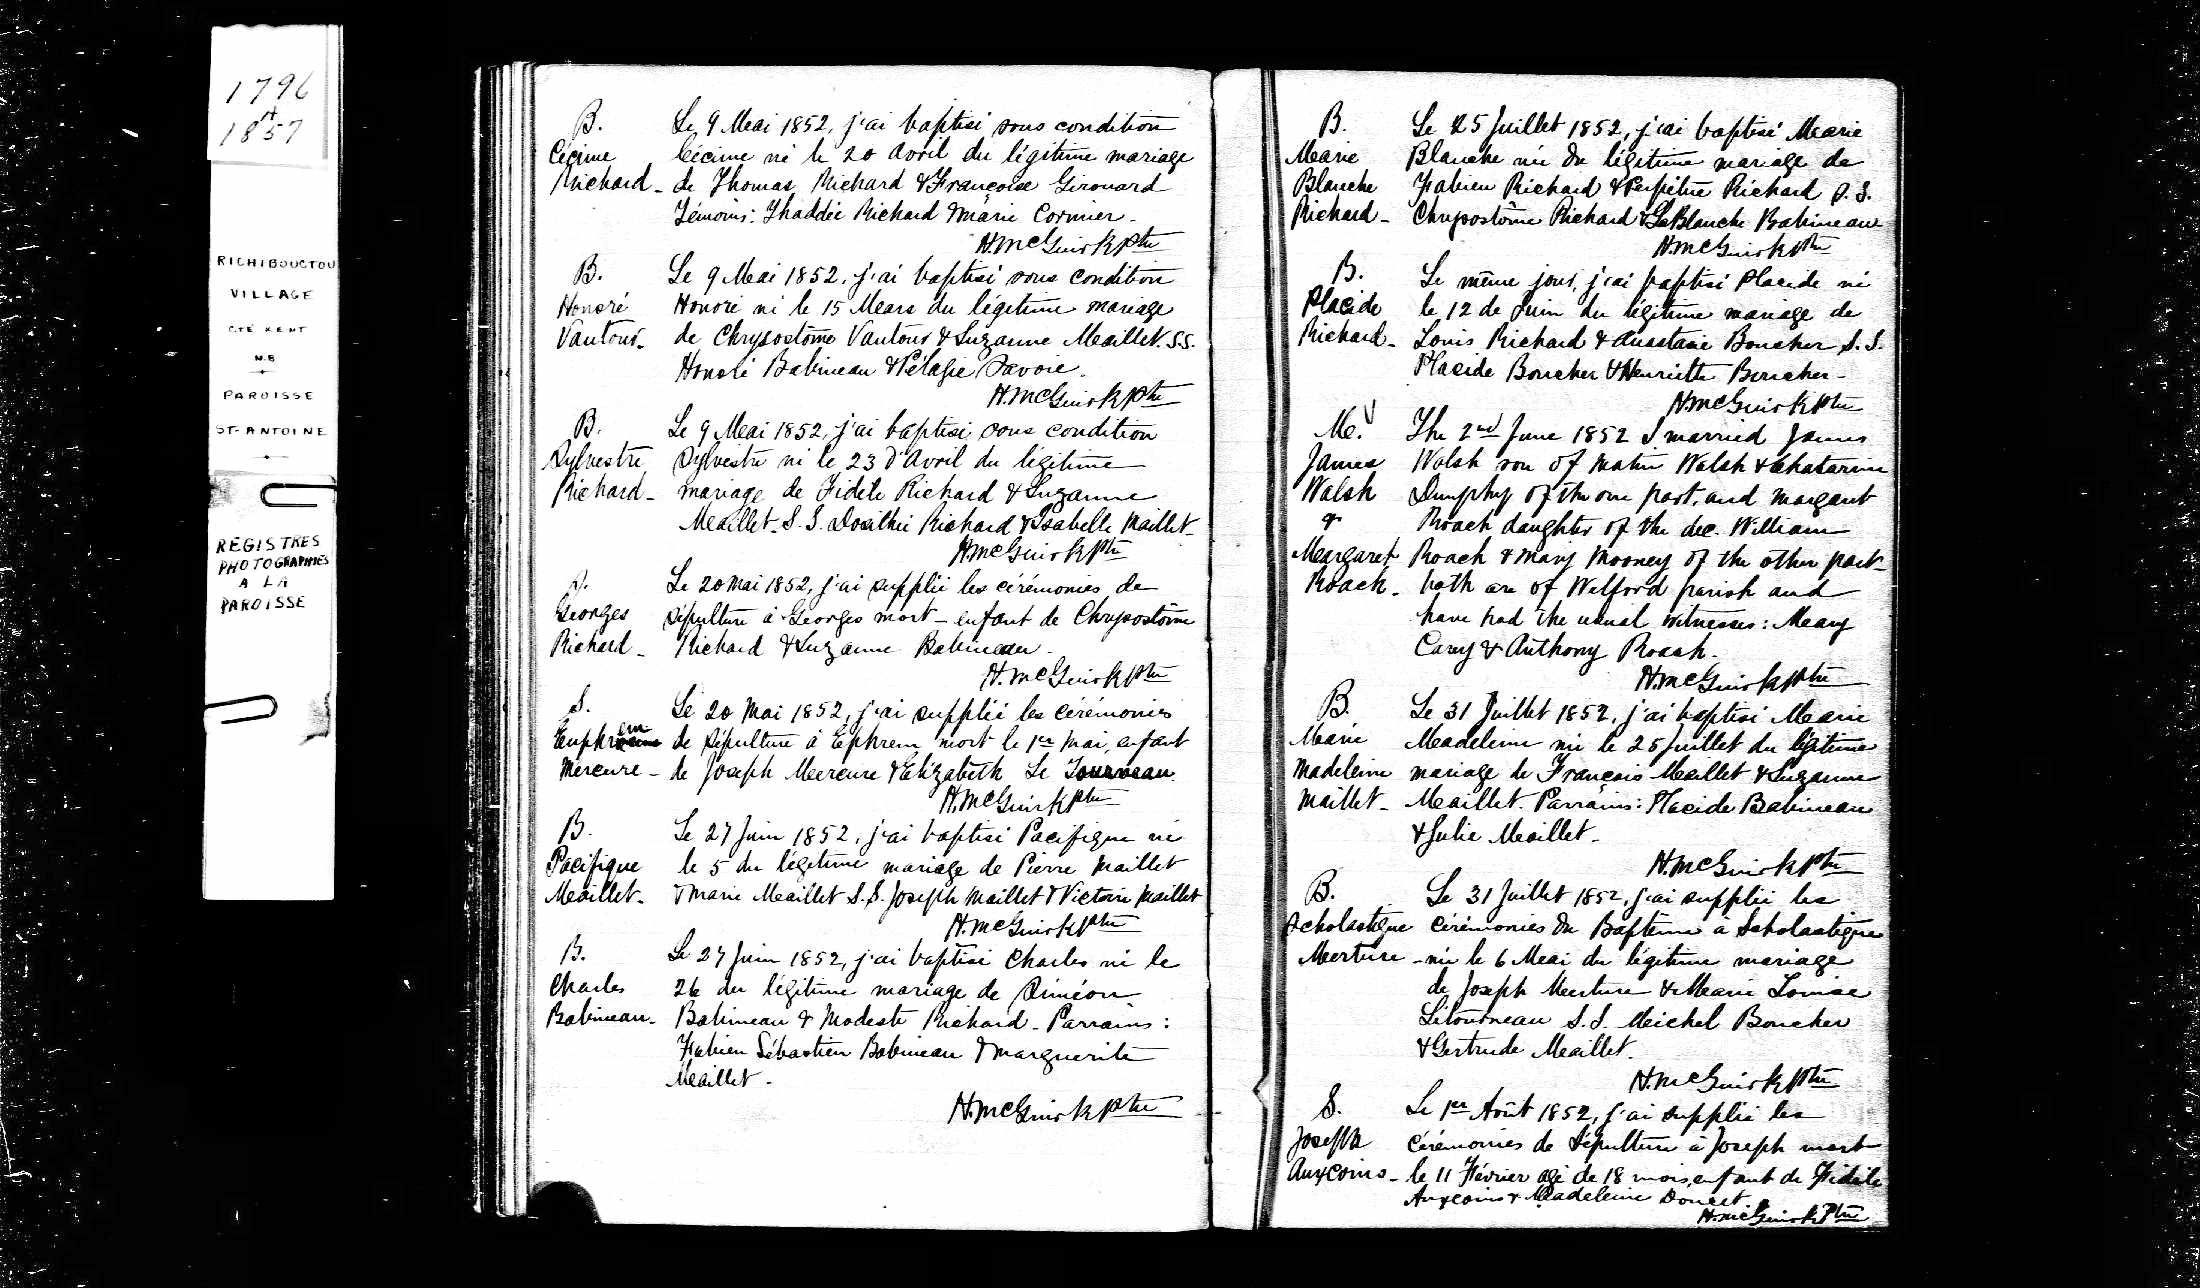 1796
à
1857
RICHIBOUCTOU
VILLAGE
CTÉ KENT
N.B
PAROISSE
ST-ANTOINE
REGISTRES
PHOTOGRAPHIÉS
A LA
PAROISSE
B. Le 9 Mai 1852, j'ai baptisé sous condition
Cécime Cécime né le 20 Avril du légitime mariage
Richard - de Thomas Richard & Françoise Girouard
Témoins: Thaddée Richard & Marie Cormier -
H. McGuirk Ptre
B. Le 9 Mai 1852, j'ai baptisé sous condition
Honoré Honoré né le 15 Mars du légitime mariage
Vautour - de Chrysostôme Vautour & Suzanne Maillet. S.S.
Honoré Babineau & Pélagie Savoie.
H. McGuirk Ptre
B. Le 9 Mai 1852, j'ai baptisé sous condition
Sylvestre Sylvestre né le 23 d'Avril du légitime
Richard - mariage de Fidèle Richard & Suzanne
Maillet - S.S. Dosithée Richard & Isabelle Maillet -
H. McGuirk Ptre
S. Le 20 Mai 1852, j'ai supplié les cérémonies de
Georges sépulture à Georges mort - enfant de Chrysostôme
Richard - Richard & Suzanne Babineau -
H. McGuirk Ptre
S. Le 20 Mai 1852, j'ai supplié les cérémonies
Euphrem de sépulture à Ephrem mort le 1er Mai, enfant
Mercure - de Joseph Mercure & Elizabeth Le Tourneau.
H. McGuirk Ptre
B. Le 27 Juin 1852, j'ai baptisé Pacifique né
Pacifique le 5 du légitime mariage de Pierre Maillet
Maillet - & Marie Maillet S.S. Joseph Maillet & Victoire Maillet
H. McGuirk Ptre
B. Le 27 Juin 1852, j'ai baptisé Charles né le
Charles 26 du légitime mariage de Siméon
Babineau - Babineau & Modeste Richard - Parrains:
Fabien Sébastien Babineau & Marguerite
Maillet -
H. McGuirk Ptre
B. Le 25 Juillet 1852, j'ai baptisé Marie
Marie Blanche née du légitime mariage de
Blanche Fabien Richard & Perpétue Richard S.S.
Richard - Chrysostôme Richard & Blanche Babineau
H. McGuirk Ptre
B. Le même jour, j'ai baptisé Placide né
Placide le 12 de Juin du légitime mariage de
Richard - Louis Richard & Anastasie Boucher S.S.
Placide Boucher & Henriette Boucher -
H. McGuirk Ptre
M. The 2nd June 1852 I married James
James Walsh son of Matin Walsh & Chatarine
Walsh Dunphy of the one part, and Margaret
& Roach daughter of the dec. William
Margaret Roach & Mary Mooney of the other part -
Roach - both are of Welford parish and
have had the usual witnesses: Mary
Carey & Anthony Roach.
H. McGuirk Ptre
B. Le 31 Juillet 1852, j'ai baptisé Marie
Marie Madeleine née le 25 Juillet du légitime
Madeleine mariage de François Maillet & Suzanne
Maillet - Maillet. Parrains: Placide Babineau
& Julie Maillet -
H. McGuirk Ptre
B. Le 31 Juillet 1852, j'ai supplié les
Scholastique cérémonies du Baptême à Scholastique
Merture - née le 6 Mai du légitime mariage
de Joseph Merture & Marie Louise
Létourneau S.S. Michel Boucher
& Gertrude Maillet.
H. McGuirk Ptre
S. Le 1er Août 1852, j'ai supplié les
Joseph cérémonies de Sépulture à Joseph mort
Auxcoins - le 11 Février agé de 18 mois, enfant de Fidèle
Auxcoins & Madeleine Doucet
H. McGuirk Ptre